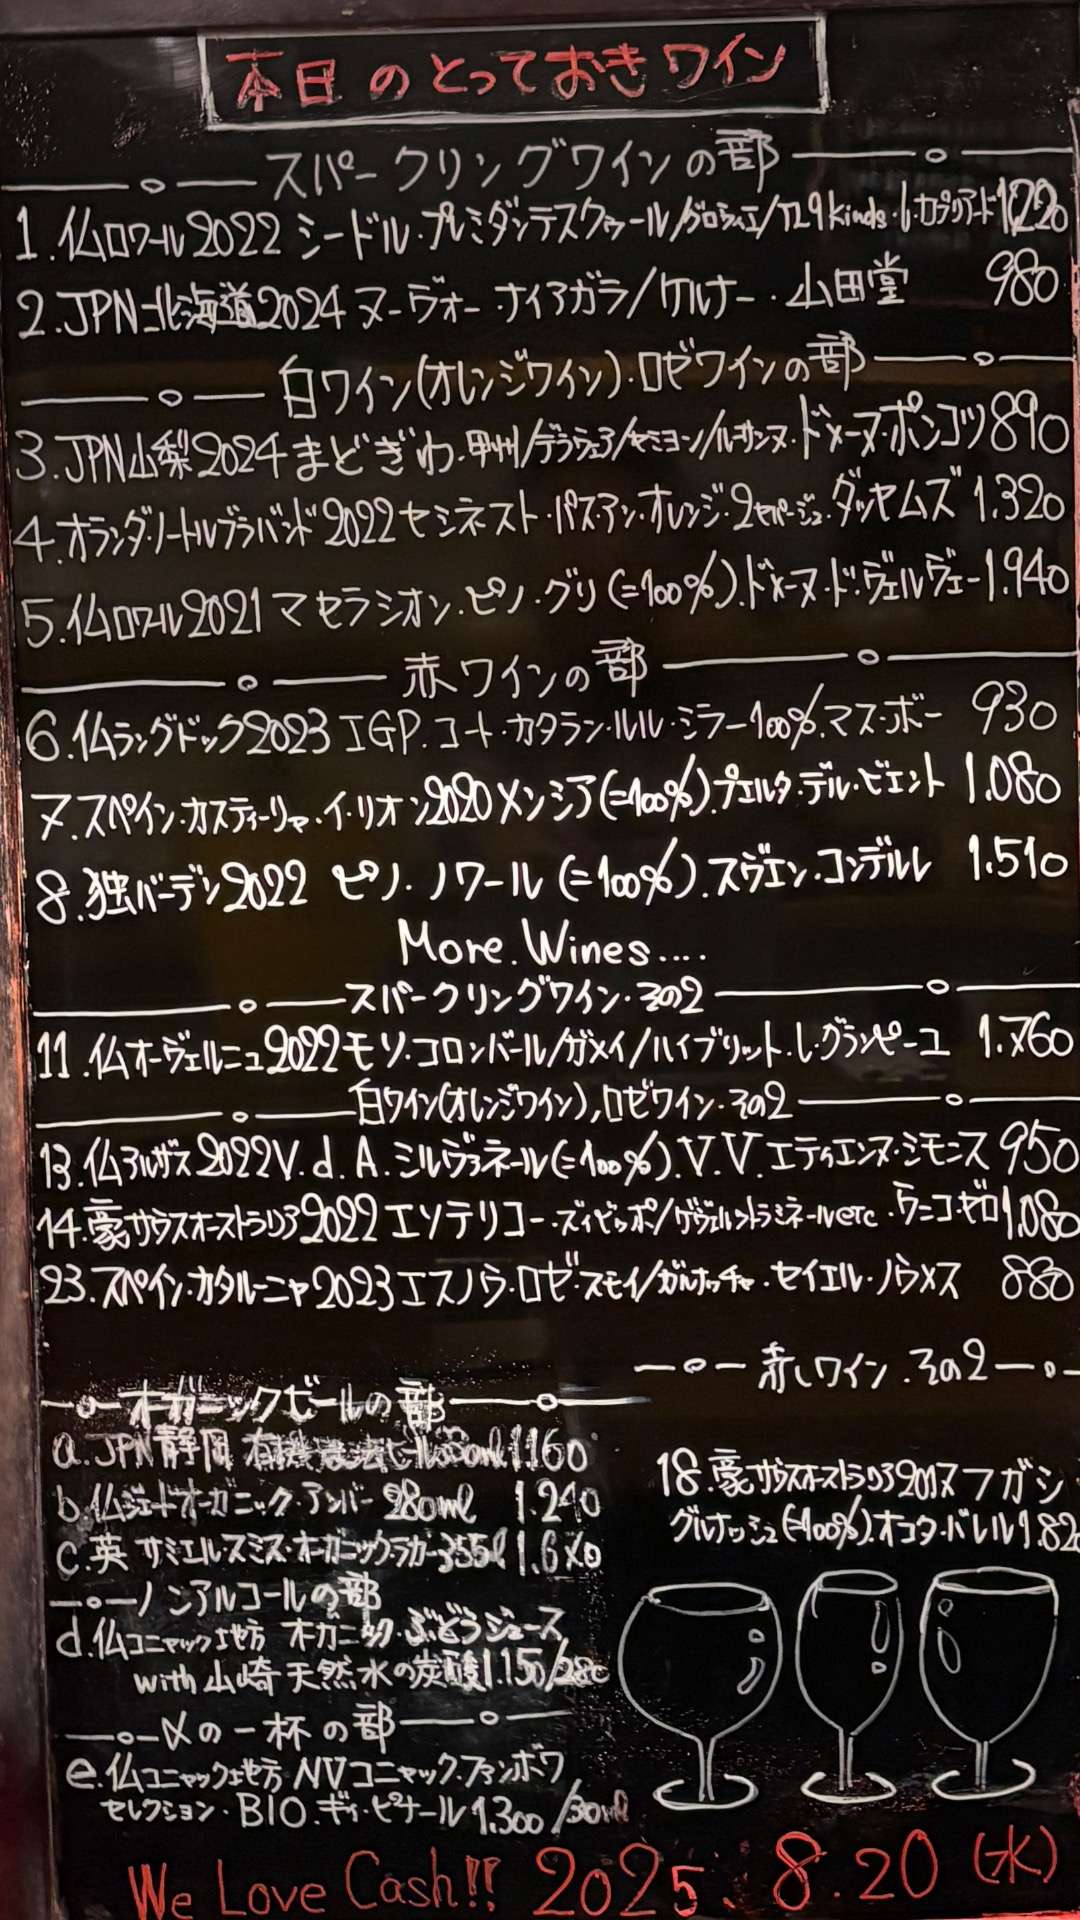 本日のとっておきワイン
スパークリングワインの部
1.仏ロワール2022 シードル・プルミダンテスクゥール/グロウイエ/アロ9kinds・レ・カプリアード 1220
2.JPN北海道2024 ヌーヴォー・ナイアガラ/ケルナー・山田堂 980
白ワイン(オレンジワイン)・ロゼワインの部
3.JPN山梨2024 まどぎわ・甲州/デラウェア/セミヨン/ルーサンヌ・ドメーヌ・ポンコツ 890
4.オランダ・ノートルブラバンド2022 セシネスト・パス・アン・オレンジ・2セパージュ・ダッセムズ 1.320
5.仏ロワール2021 マセラシオン・ピノ・グリ(=100%).ドメーヌ・ド・ヴェルヴェー 1.940
赤ワインの部
6.仏ラングドック2023 IGP.コート・カタラン・ルル・ミラー100%.マス・ボー 930
7.スペイン・カスティーリャ・イ・リオン2020 メンシア(=100%).プェルタ・デル・ビエント 1.080
8.独バーデン2022 ピノ・ノワール(=100%).スヴェン・コンデルレ 1.510
More.Wines....
スパークリングワイン・その2
11.仏オーヴェルニュ2022 モソ・コロンバール/ガメイ/ハイブリット・レ・グランピーユ 1.760
白ワイン(オレンジワイン),ロゼワイン・その2
13.仏アルザス2022 V.d.A.シルヴァネール(=100%).V.V.エティエンヌ・シモニス 950
14.豪サウスオーストラリア2022 エソテリコー・ズィビッポ/ゲヴェルツトラミネールetc・ウニコ・ゼロ 1.080
23.スペイン・カタルーニャ2023 エスノウ・ロゼ・スモイ/ガルナッチャ・セイエル・ノウメス 880
赤ワイン.その2
18.豪サウスオーストラリア ヌフガシ
グルナッシュ(=100%).オコタ・バレル 1.82
オーガニックビールの部
a.JPN静岡 有機農法ビール 1.160
b.仏ジェードオーガニック・アンバー 280ml 1.240
c.英 サミエル・スミス・オーガニックラガー355 1.6
ノンアルコールの部
d.仏コニャック地方 オガニック・ぶどうジュース
with 山崎天然水の炭酸 1.150/280
〆の一杯の部
e.仏コニャック地方 NVコニャック・ファンボワ
セレクション・BIO.ギィ・ピナール 1.300/30ml
We Love Cash!! 2025.8.20(水)